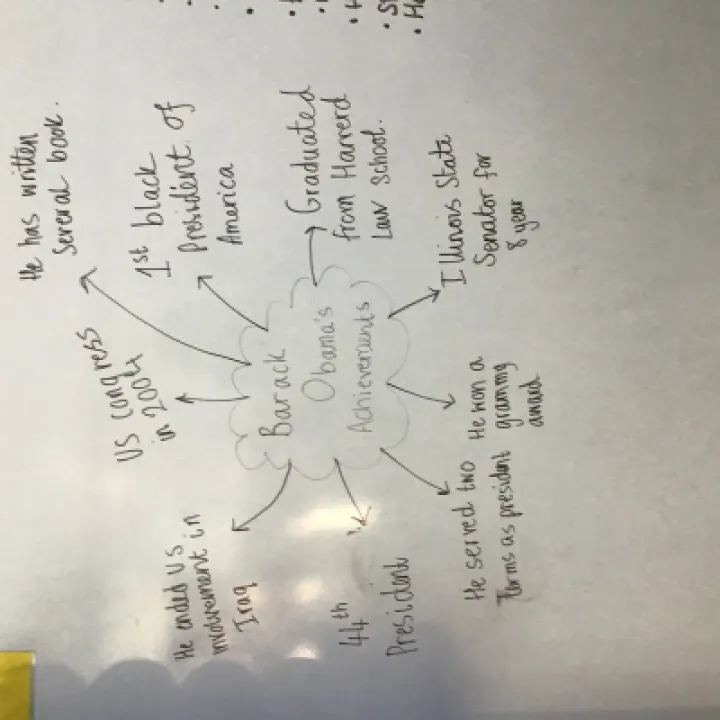 He has written
several book.
1st black
President of
America
Graduated
from Harrerd
Law School.
Illinois State
Senator for
8 year
He won a
grammy
award
He served two
Terms as president
44th
President
He ended US
involvement in
Iraq
US Congress
in 2004
Barack
Obama's
Achievements